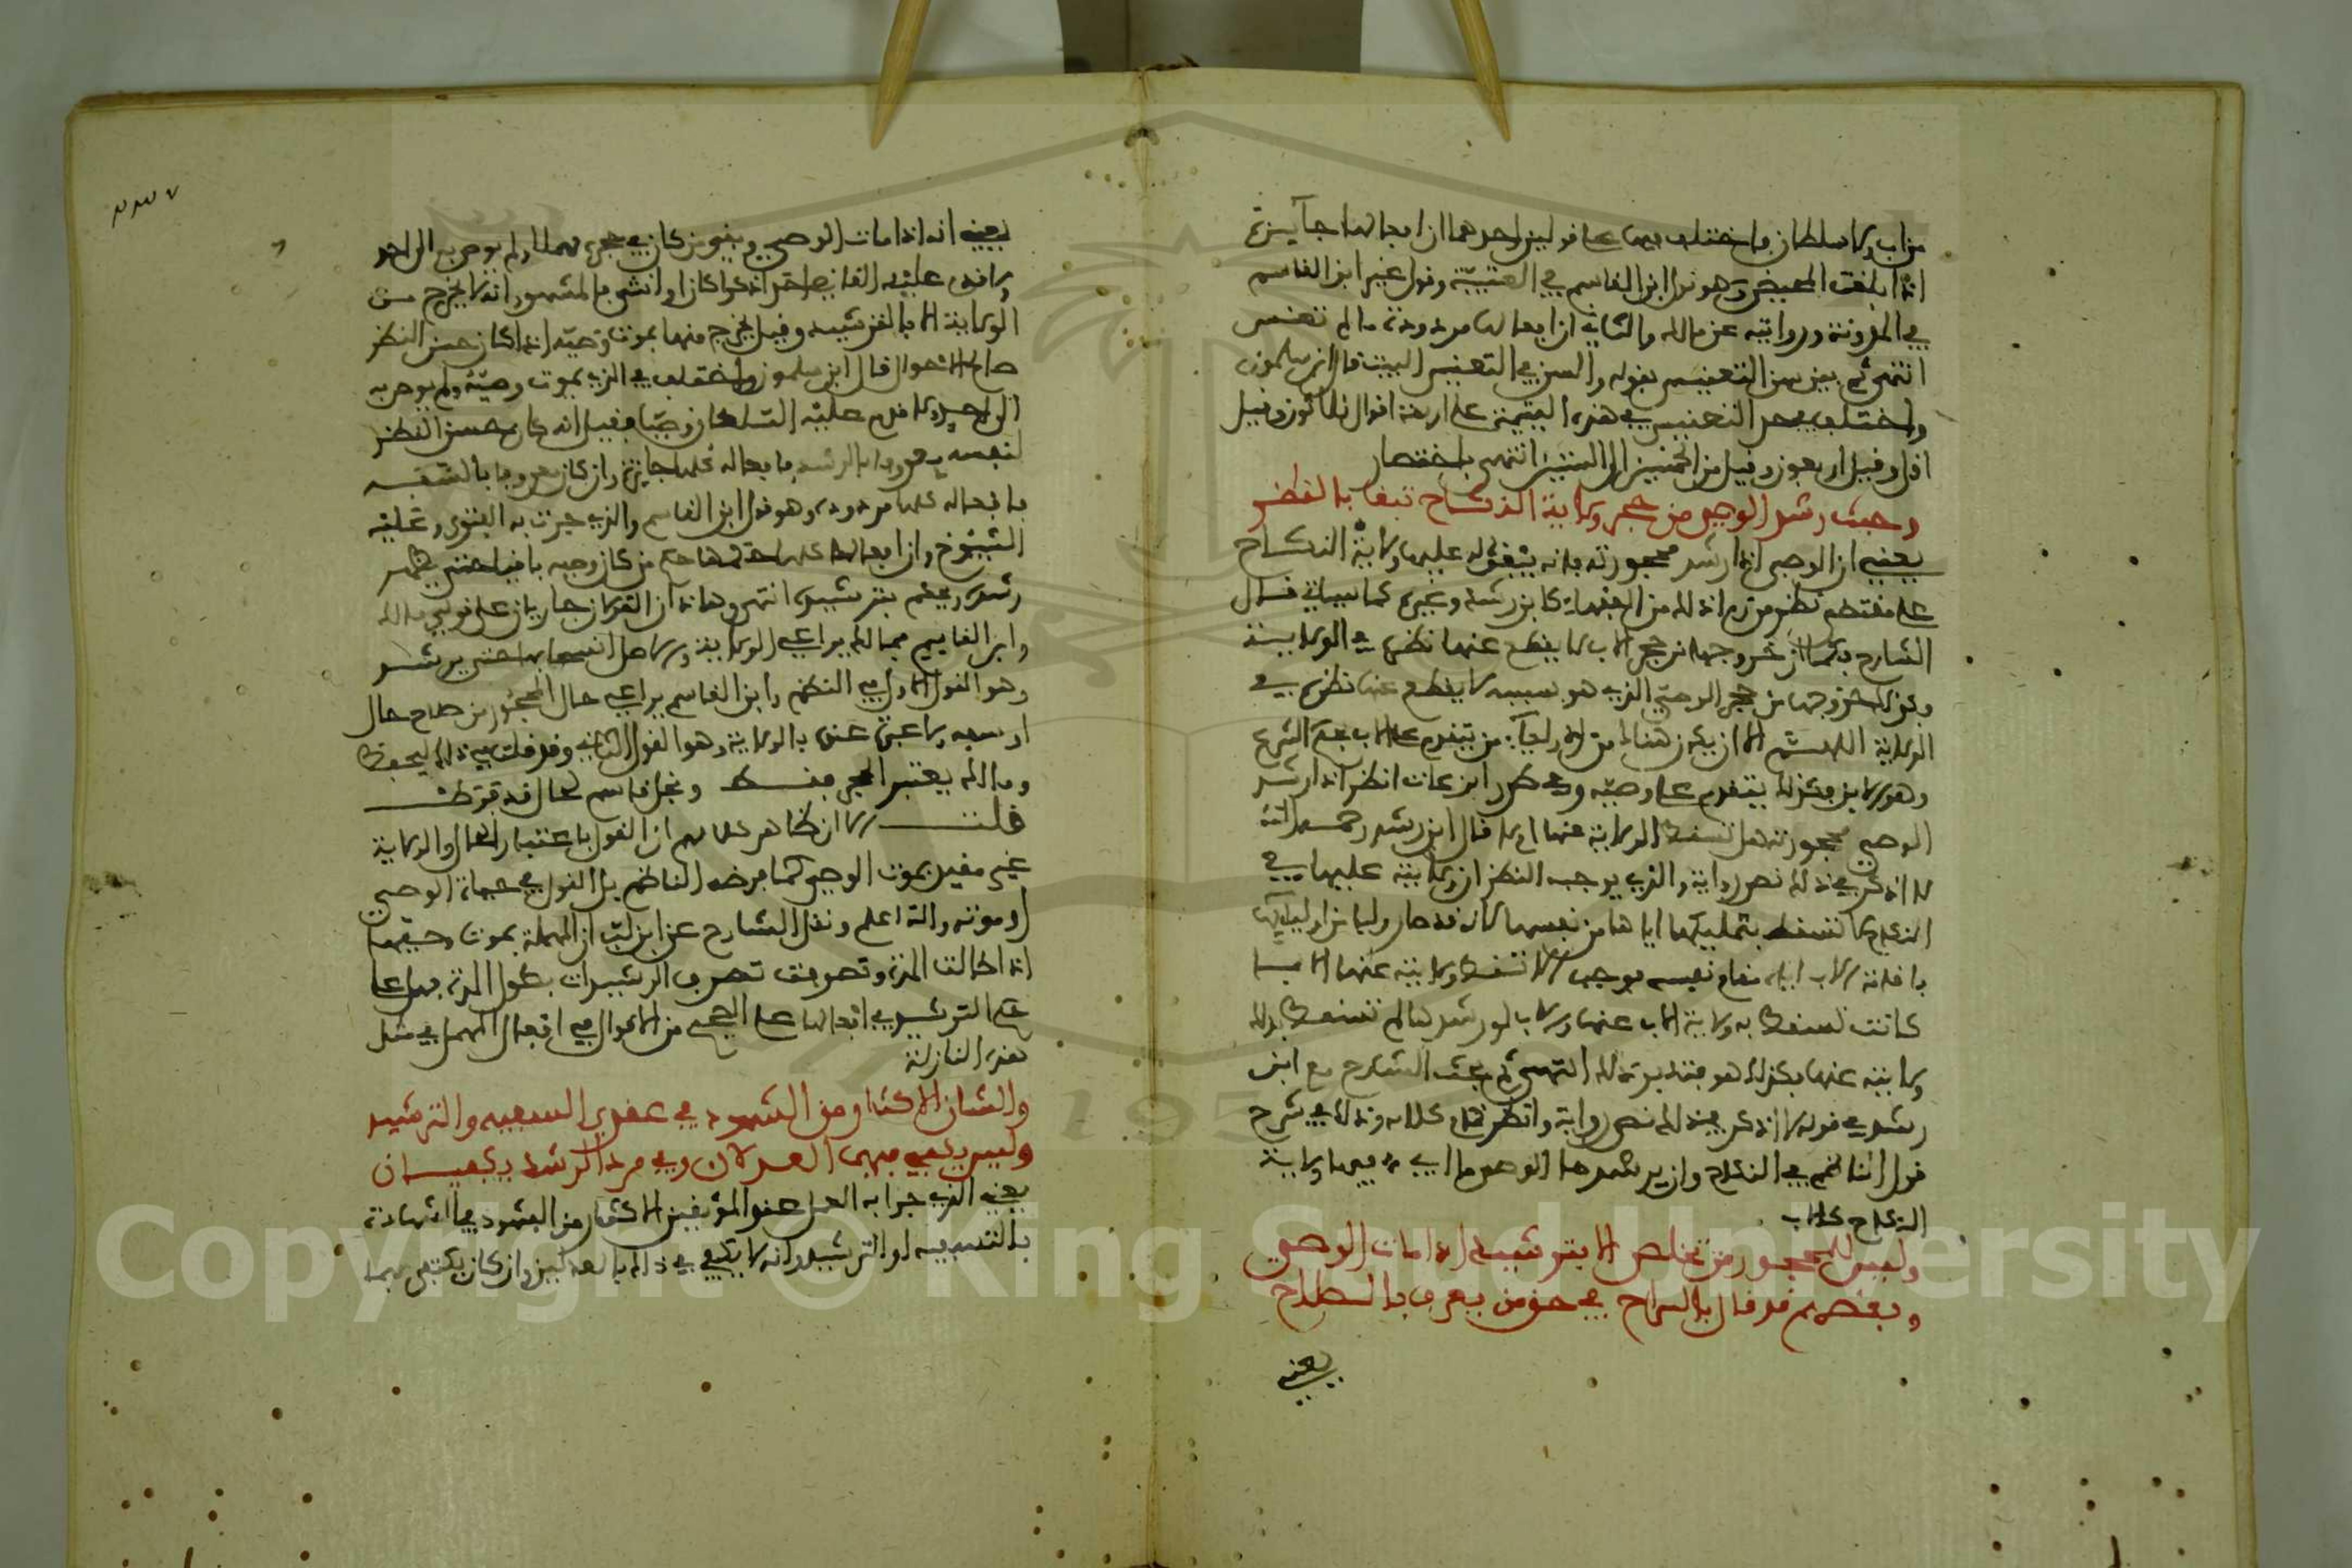 من اب ولا سلطان فاختلف فيها على قولين احدهما ان افعالها جائزة
اذا بلغت المحيض وهو قول ابن القاسم في العتبية وقول غير ابن القاسم
في المدونة وروايته عن مالك والثاني ان افعالها مردودة ما لم تعنس
انتهى ثم بين سن التعنيس بقوله والسن في التعنيس البيت قال ابن سلمون
واختلف في حد التعنيس في هذه اليتيمة على اربعة اقوال ثلاثون وقيل
اقل وقيل اربعون وقيل من الخمسين الى الستين انتهى باختصار
وحيث رشد الوصي من حجر ولاية النكاح تبقا بالنظر
يعني ان الوصي اذا رشد محجورته فانه يبقى له عليها ولاية النكاح
على مقتضى نظر من رءا ذلك من الفقهاء كابن رشد وغيره كما سياتي قال
الشارح فكما ان خروجها من حجر الاب لا يقطع عنها نظره في الولاية
وكذلك خروجها من حجر الوصي الذي هو بسببه لا يقطع عنها نظره في
الولاية اللهم الا ان يكون هنالك من الاولياء من يتقدم على الاب بحكم الشرع
وهو الابن فكذلك يتقدم على وصيه وفي طرر ابن عات انظر اذا رشد
الوصي محجورته هل تسقط الولاية عنها ام لا قال ابن رشد رحمه الله
لا اذكر في ذلك نص رواية والذي يوجب النظر ان ولايته عليها في
النكاح لا تسقط بتمليكها اياها من نفسها لانه قد صار وليا من اوليائها
باقامة الاب اياه مقام نفسه فوجب الا تسقط ولايته عنها الا بما
كانت تسقط به ولاية الاب عنها والاب لو رشدها لم تسقط بذلك
ولايته عنها فكذلك هو فتدبر ذلك انتهى ثم بحث الشارح مع ابن
رشد في قوله لا اذكر في ذلك نص رواية وانظر تمام كلامه وذلك في شرح
قول الناظم في النكاح وان يرشدها الوصي ما ابي فيها ولاية
النكاح كالاب
وليس للمحجور من تخلص الا بترشيد اذا مات الوصي
وبعضهم قد قال بالسراح في حق من يعرف بالصلاح
يعني
٢٣٧
يعني انه اذا مات الوصي وبقي من كان في حجره مهملا ولم يوص به الى احد
ولا قدم عليه القاضي احدا ذكرا كان او انثى فالمشهور انه لا يخرج من
الولاية الا بالترشيد وقيل يخرج منها بموت وصيه اذا كان حسن النظر
صالح الاحوال قال ابن سلمون واختلف في الذي يموت وصيه ولم يوص به
الى احد ولا قدم عليه السلطان وصيا فقيل انه كان حسن النظر
لنفسه معروفا بالرشد فافعاله كلها جائزة وان كان معروفا بالسفه
فافعاله كلها مردودة وهو قول ابن القاسم والذي جرت به الفتوى وعليه
الشيوخ وان افعالها كلها حكمها حكم من كان وصيه باقيا حتى يظهر
رشده ويحكم بترشيده انتهى وهاذان القولان جاريان على قولي مالك
وابن القاسم فمالك يراعي الولاية والاصل انسحابها حتى يرشد
وهو القول الاول في النظم وابن القاسم يراعي حال المحجور من صلاح حال
او سفه ولا عبرة عنده بالولاية وهو القول الثاني وقد قلت في ذلك ليحفظ
ومالك يعتبر الحجر فقط ونجل قاسم لحال قد فرط
قلت الا ان ظاهر كلامهم ان القول باعتبار الحال والولاية
غير مقيد بموت الوصي كما فرضه الناظم بل القول في حياة الوصي
او موته والله اعلم ونقل الشارح عن ابن لب ان المهملة بموت وصيها
اذا طالت المدة وتصرفت تصرف الرشيدات بطول المدة فهل على
حكم الترشيد في افعالها على الصحيح من الاقوال في افعال المهمل في مثل
هذه النازلة
والشان الاكثار من الشهود في عقدي التسفيه والترشيد
وليس يكفي فيهما العدلان وفي مرد الرشد يكفيان
يعني الذي جرا به العمل عند الموثقين الاكثار من الشهود في الشهادة
بالتسفيه او الترشيد وانه لا يكفي في ذلك بالعدلين وان كان يكتفي بهما
Copyright © King Saud University
195